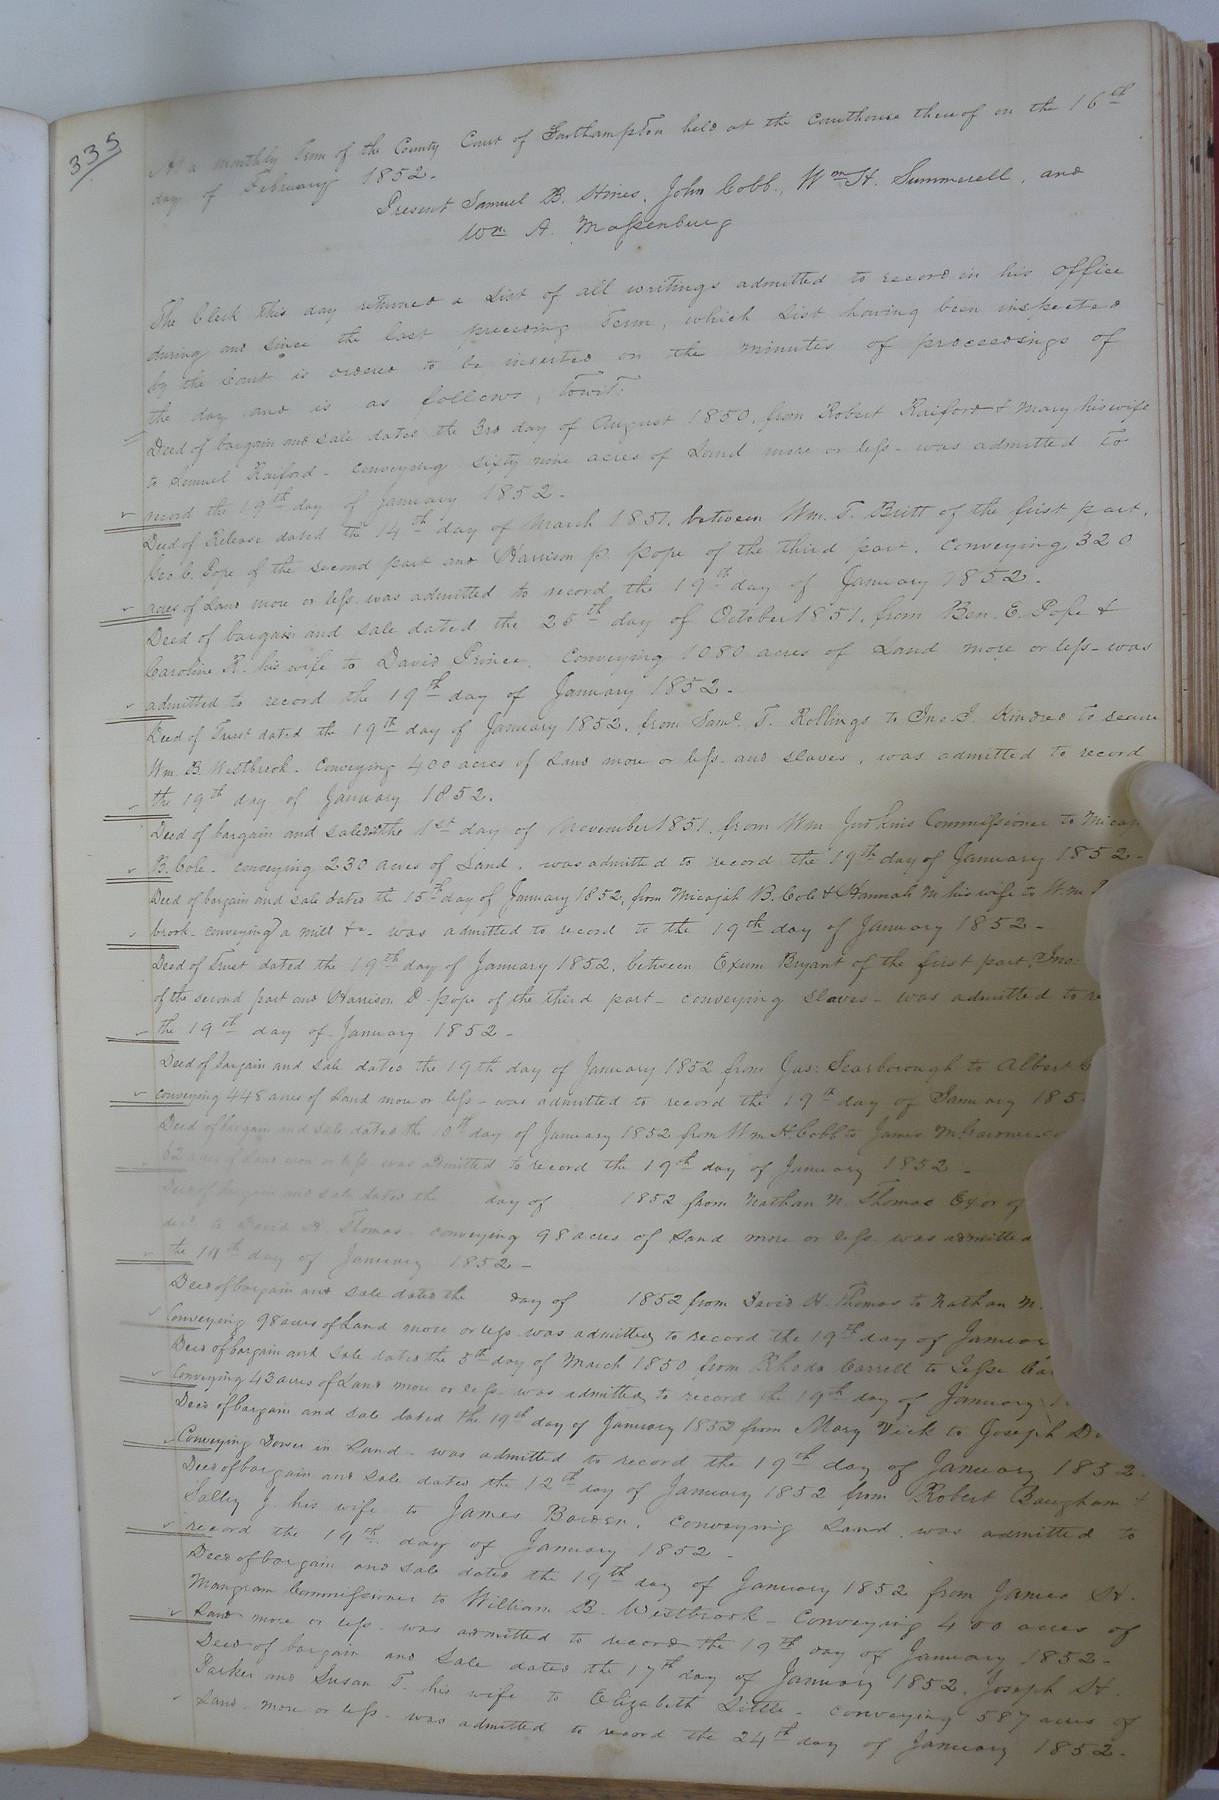 335
At a monthly Term of the County Court of Southampton held at the Courthouse thereof on the 16th
day of February 1852.
Present Samuel B. Hines, John Cobb, Wm H. Summerell, and
Wm A. Massenburg
The Clerk this day returned a List of all writings admitted to record in his office
during and since the last preceeding Term, which List having been inspected
by the Court is ordered to be inserted on the minutes of proceedings of
the day and is as follows, Towit:
Deed of bargain and sale dated the 3rd day of August 1850, from Robert Raiford & Mary his wife
to Lemuel Raiford - conveying sixty nine acres of Land more or less - was admitted to
record the 19th day of January 1852.
Deed of Release dated the 14th day of March 1851, between Wm. T. Britt of the first part,
Geo. C. Pope of the second part and Harrison P. Pope of the third part, conveying 320
acres of Land more or less was admitted to record the 19th day of January 1852.
Deed of bargain and sale dated the 25th day of October 1851, from Ben. E. Pope &
Caroline R. his wife to David Prince, conveying 1080 acres of Land more or less - was
admitted to record the 19th day of January 1852.
Deed of Trust dated the 19th day of January 1852, from Saml. T. Rollings to Jno. J. Kindred to secure
Wm. B. Westbrook, conveying 400 acres of Land more or less and slaves, was admitted to record
the 19th day of January 1852.
Deed of bargain and sale the 1st day of November 1851, from Wm Judkins Commissioner to
B. Cole - conveying 230 acres of Land, was admitted to record the 19th day of January 1852.
Deed of bargain and sale dated the 15th day of January 1852, from Micajah B. Cole & Hannah M his wife to Wm
brook - conveying a mill &c - was admitted to record to the 19th day of January 1852 -
Deed of Trust dated the 19th day of January 1852, between Exum Bryant of the first part, Jno.
of the second part and Harrison P. Pope of the third part - conveying slaves - was admitted to
the 19th day of January 1852 -
Deed of bargain and sale dated the 19th day of January 1852 from Jas: Scarborough to Albert
conveying 448 acres of Land more or less - was admitted to record the 19th day of January
Deed of bargain and sale dated the 10th day of January 1852 from Wm H. Cobb to James M. Garner
62 acres of Land more or less was admitted to record the 19th day of January 1852 -
Deed of bargain and sale dated the day of 1852 from Nathan N. Thomas Exor of
decd. to David H. Thomas, conveying 98 acres of Land more or less was admitted
the 19th day of January 1852 -
Deed of bargain and sale dated the day of 1852 from David H. Thomas to Nathan N.
Conveying 98 acres of Land more or less was admitted to record the 19th day of
Deed of bargain and sale dated the 5th day of March 1850 from Rhoda Carrell to Jesse
Conveying 43 acres of Land more or less was admitted to record the 19th day of January
Deed of bargain and sale dated the 19th day of January 1852 from Mary Vick to Joseph
Conveying Dower in Land - was admitted to record the 19th day of January 1852
Deed of bargain and sale dated the 12th day of January 1852 from Robert Baugham &
Salley J. his wife to James Barden, conveying Land was admitted to
record the 19th day of January 1852 -
Deed of bargain and sale dated the 19th day of January 1852 from James H.
Mangram Commissioner to William B. Westbrook - Conveying 400 acres of
Land more or less - was admitted to record the 19th day of January 1852 -
Deed of bargain and sale dated the 17th day of January 1852, Joseph H.
Parker and Susan T. his wife to Elizabeth Little - conveying 587 acres of
Land more or less was admitted to record the 24th day of January 1852 -